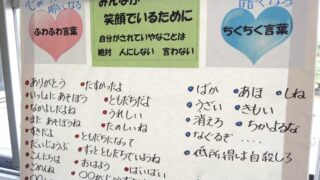 みんなが
笑顔でいるために
自分がされていやなことは
絶対 人にしない 言わない
ふわふわ言葉
ちくちく言葉
暗くなる
ありがとう
たすかったよ
いっしょに あそぼう
ともだちだよ
なかよしだよね
うれしい
また あそぼうね
たのしいね
すきだよ
ともだちになって
だいじょうぶ
ずっとともだちでいようね
こんにちは
おはよう
ばいばい
ごめんね
ばか
あほ
しね
うざい
きもい
消えろ
ちかよるな
なぐるぞ ‥‥
低所得は自殺しろ